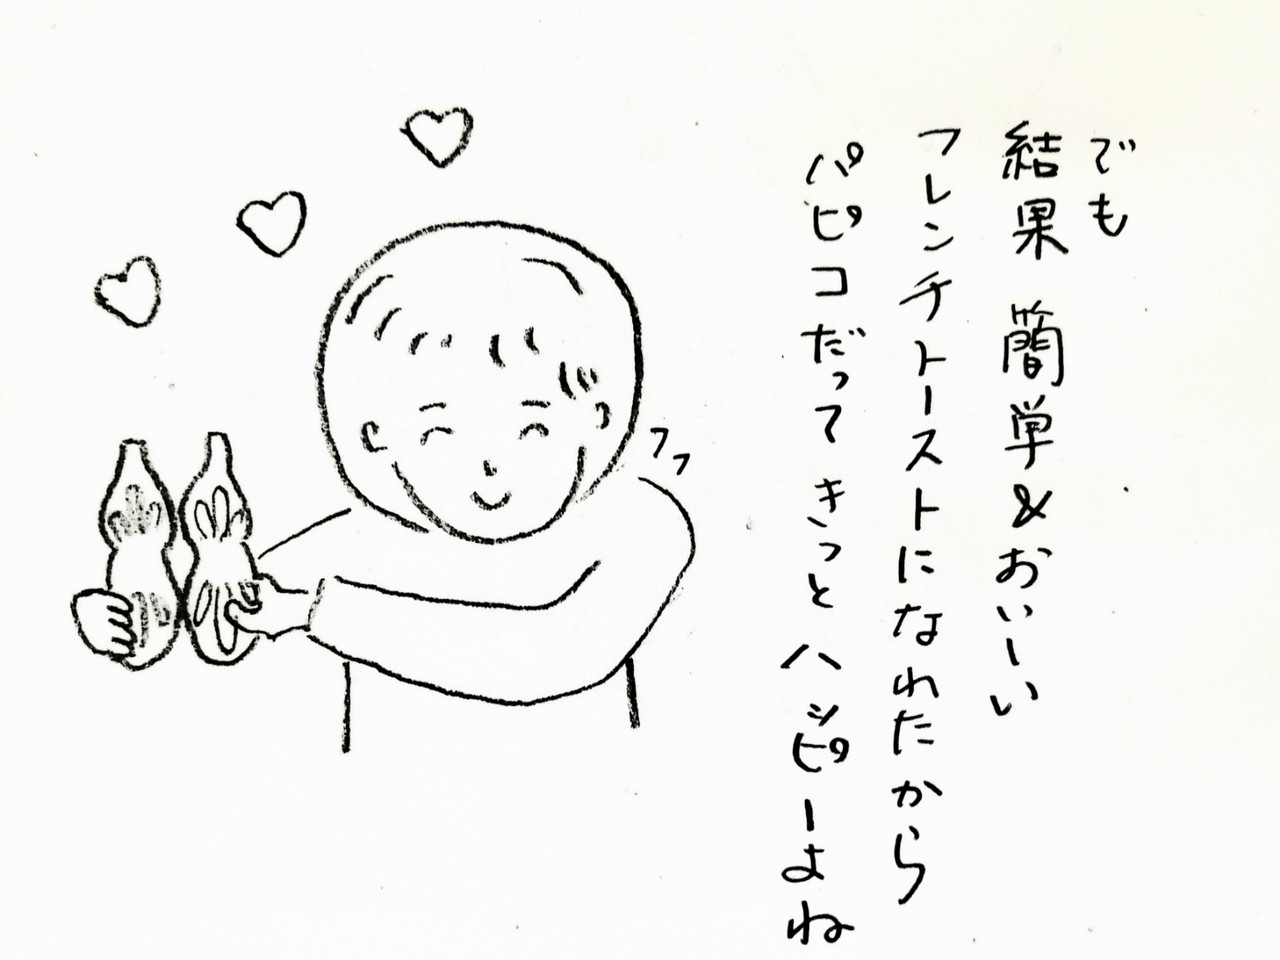 でも
結果 簡単&おいーい
フレンチトーストになれたから
パピコだって きっと ハッピーよね
フフ